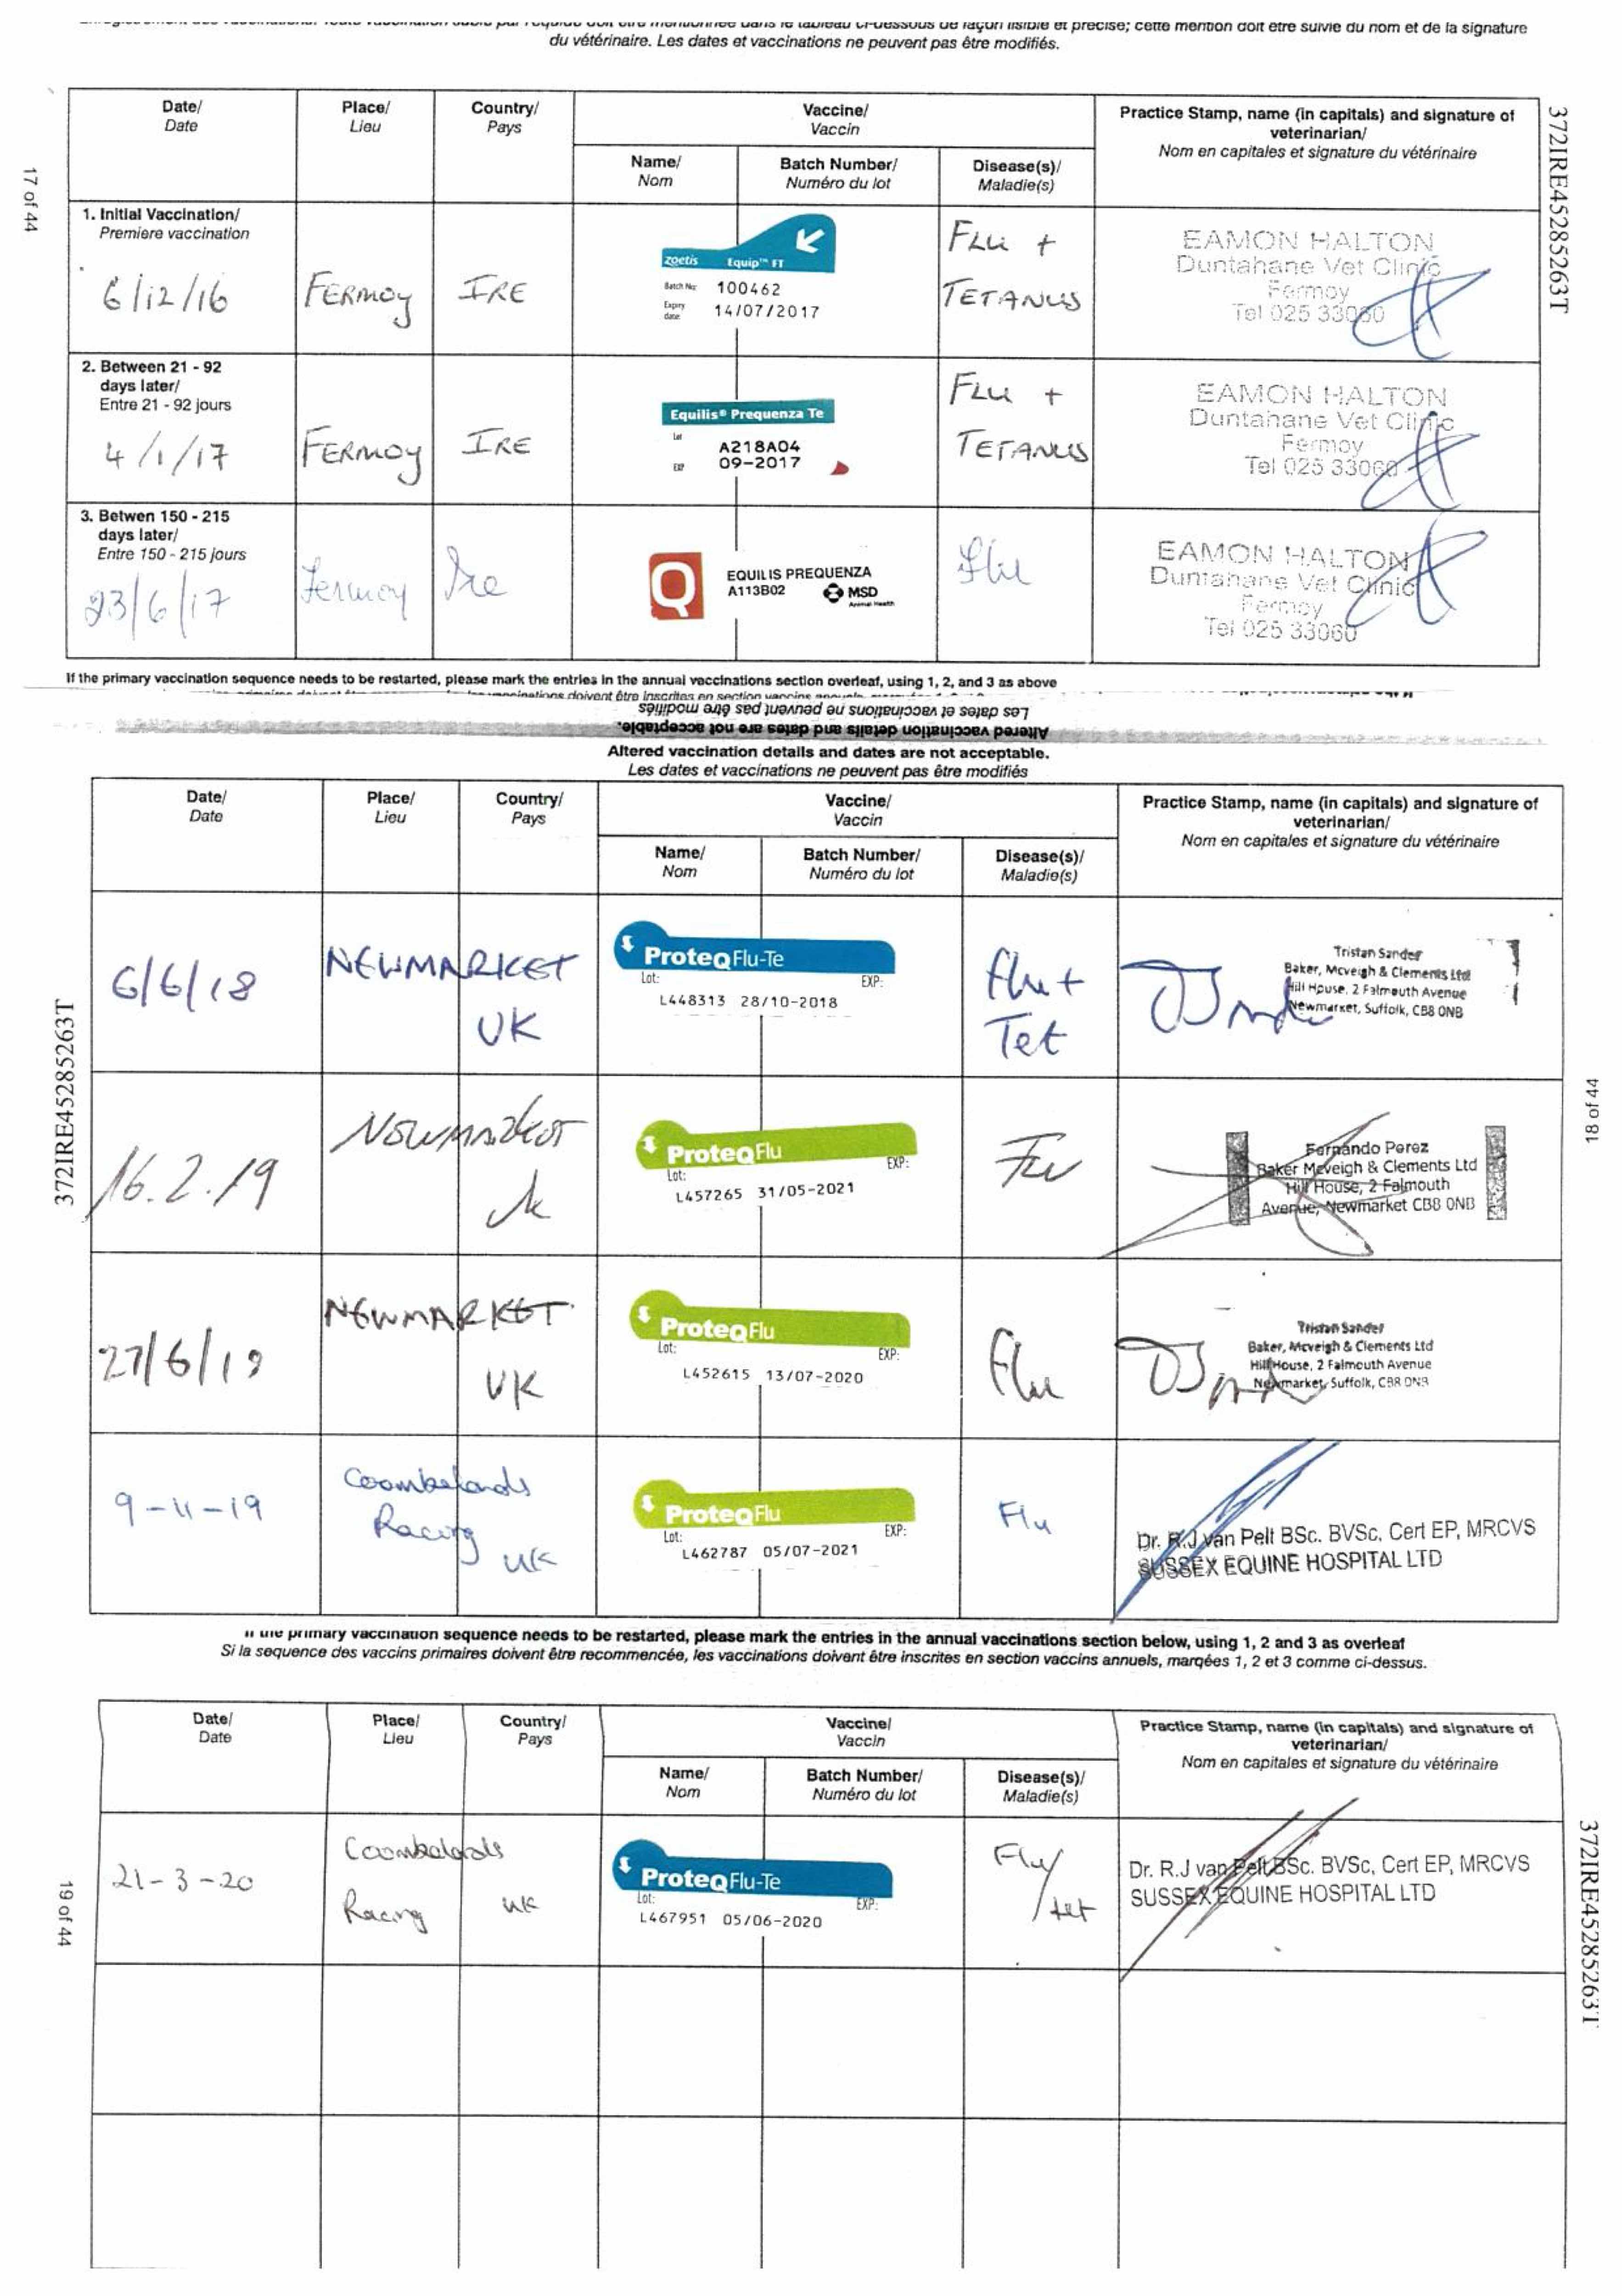 du vétérinaire. Les dates et vaccinations ne peuvent pas être modifiés.
17 of 44
372IRE45285263T
Date/ Place/ Country/ Vaccine/ Practice Stamp, name (in capitals) and signature of
Date Lieu Pays Vaccin veterinarian/
Nom en capitales et signature du vétérinaire
Name/ Batch Number/ Disease(s)/
Nom Numéro du lot Maladie(s)
1. Initial Vaccination/
Premiere vaccination
6/12/16 FERMOY IRE
zoetis Equip™ FT
Batch No: 100462
Expiry date: 14/07/2017
FLU +
TETANUS
EAMON HALTON
Duntahane Vet Clinic
Fermoy
Tel 025 33060
2. Between 21 - 92
days later/
Entre 21 - 92 jours
4/1/17 FERMOY IRE
Equilis® Prequenza Te
Lot A218A04
EXP 09-2017
FLU +
TETANUS
EAMON HALTON
Duntahane Vet Clinic
Fermoy
Tel 025 33060
3. Betwen 150 - 215
days later/
Entre 150 - 215 jours
23/6/17 Fermoy Ire
Q
EQUILIS PREQUENZA
A113B02 MSD
Animal Health
Flu
EAMON HALTON
Duntahane Vet Clinic
Fermoy
Tel 025 33060
If the primary vaccination sequence needs to be restarted, please mark the entries in the annual vaccinations section overleaf, using 1, 2, and 3 as above
Les dates et vaccinations ne peuvent pas être modifiés
Altered vaccination details and dates are not acceptable.
Altered vaccination details and dates are not acceptable.
Les dates et vaccinations ne peuvent pas être modifiés
372IRE45285263T
18 of 44
Date/ Place/ Country/ Vaccine/ Practice Stamp, name (in capitals) and signature of
Date Lieu Pays Vaccin veterinarian/
Nom en capitales et signature du vétérinaire
Name/ Batch Number/ Disease(s)/
Nom Numéro du lot Maladie(s)
6/6/18 NEWMARKET
UK
ProteqFlu-Te
Lot: EXP:
L448313 28/10-2018
Flu +
Tet
Tristan Sander
Baker, Mcveigh & Clements Ltd
Hill House, 2 Falmouth Avenue
Newmarket, Suffolk, CB8 0NB
16.2.19 Newmarket
Uk
ProteqFlu
Lot: EXP:
L457265 31/05-2021
Flu
Fernando Perez
Baker Mcveigh & Clements Ltd
Hill House, 2 Falmouth
Avenue, Newmarket CB8 0NB
27/6/19 NEWMARKET
UK
ProteqFlu
Lot: EXP:
L452615 13/07-2020
Flu
Tristan Sander
Baker, Mcveigh & Clements Ltd
Hill House, 2 Falmouth Avenue
Newmarket, Suffolk, CB8 0NB
9-11-19 Coombelands
Racing UK
ProteqFlu
Lot: EXP:
L462787 05/07-2021
Flu
Dr. R.J van Pelt BSc. BVSc, Cert EP, MRCVS
SUSSEX EQUINE HOSPITAL LTD
If the primary vaccination sequence needs to be restarted, please mark the entries in the annual vaccinations section below, using 1, 2 and 3 as overleaf
Si la sequence des vaccins primaires doivent être recommencée, les vaccinations doivent être inscrites en section vaccins annuels, marqées 1, 2 et 3 comme ci-dessus.
19 of 44
372IRE45285263T
Date/ Place/ Country/ Vaccine/ Practice Stamp, name (in capitals) and signature of
Date Lieu Pays Vaccin veterinarian/
Nom en capitales et signature du vétérinaire
Name/ Batch Number/ Disease(s)/
Nom Numéro du lot Maladie(s)
21-3-20 Coombelands
Racing UK
ProteqFlu-Te
Lot: EXP:
L467951 05/06-2020
Flu/
tet
Dr. R.J van Pelt BSc. BVSc, Cert EP, MRCVS
SUSSEX EQUINE HOSPITAL LTD